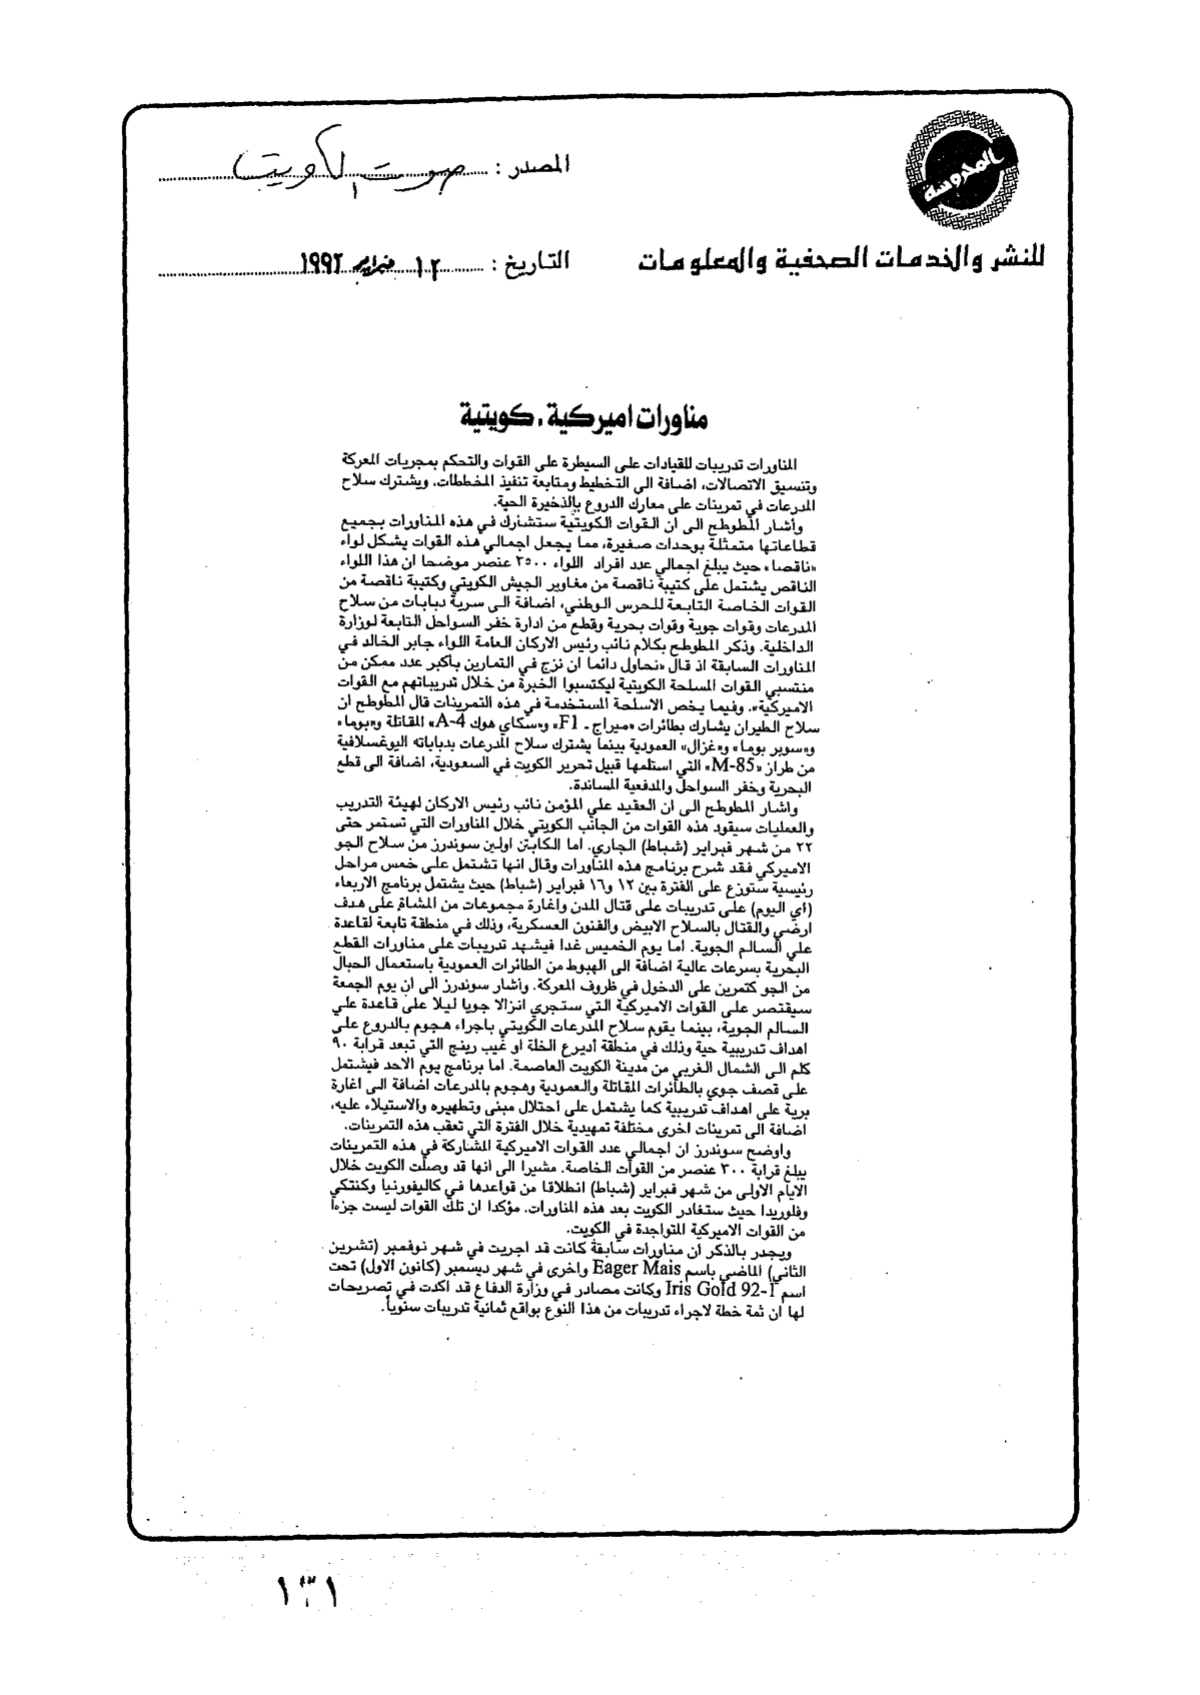 المحروسة
المصدر : صوت الكويت
للنشر والخدمات الصحفية والمعلومات
التاريخ : ١٢ فبراير ١٩٩٢
مناورات اميركية . كويتية
المناورات تدريبات للقيادات على السيطرة على القوات والتحكم بمجريات المعركة
وتنسيق الاتصالات، اضافة الى التخطيط ومتابعة تنفيذ المخططات. ويشترك سلاح
المدرعات في تمرينات على معارك الدروع بالذخيرة الحية.
وأشار المطوطح الى ان القوات الكويتية ستشارك في هذه المناورات بجميع
قطاعاتها متمثلة بوحدات صغيرة، مما يجعل اجمالي هذه القوات يشكل لواء
«ناقصا» حيث يبلغ اجمالي عدد افراد اللواء ٢٥٠٠ عنصر موضحا ان هذا اللواء
الناقص يشتمل على كتيبة ناقصة من مغاوير الجيش الكويتي وكتيبة ناقصة من
القوات الخاصة التابعة للحرس الوطني، اضافة الى سرية دبابات من سلاح
المدرعات وقوات جوية وقوات بحرية وقطع من ادارة خفر السواحل التابعة لوزارة
الداخلية. وذكر المطوطح بكلام نائب رئيس الاركان العامة اللواء جابر الخالد في
المناورات السابقة اذ قال «نحاول دائما ان نزج في التمارين بأكبر عدد ممكن من
منتسبي القوات المسلحة الكويتية ليكتسبوا الخبرة من خلال تدريباتهم مع القوات
الاميركية». وفيما يخص الاسلحة المستخدمة في هذه التمرينات قال المطوطح ان
سلاح الطيران يشارك بطائرات «ميراج - F1» و«سكاي هوك A-4» المقاتلة و«بوما»
و«سوبر بوما» و«غزال» العمودية بينما يشترك سلاح المدرعات بدباباته اليوغسلافية
من طراز «M-85» التي استلمها قبيل تحرير الكويت في السعودية، اضافة الى قطع
البحرية وخفر السواحل والمدفعية المساندة.
واشار المطوطح الى ان العقيد علي المؤمن نائب رئيس الاركان لهيئة التدريب
والعمليات سيقود هذه القوات من الجانب الكويتي خلال المناورات التي تستمر حتى
٢٢ من شهر فبراير (شباط) الجاري. اما الكابتن اولين سوندرز من سلاح الجو
الاميركي فقد شرح برنامج هذه المناورات وقال انها تشتمل على خمس مراحل
رئيسية ستوزع على الفترة بين ١٢ و١٦ فبراير (شباط) حيث يشتمل برنامج الاربعاء
(اي اليوم) على تدريبات على قتال المدن واغارة مجموعات من المشاة على هدف
ارضي والقتال بالسلاح الابيض والفنون العسكرية، وذلك في منطقة تابعة لقاعدة
علي السالم الجوية. اما يوم الخميس غدا فيشهد تدريبات على مناورات القطع
البحرية بسرعات عالية اضافة الى الهبوط من الطائرات العمودية باستعمال الحبال
من الجو كتمرين على الدخول في ظروف المعركة. وأشار سوندرز الى ان يوم الجمعة
سيقتصر على القوات الاميركية التي ستجري انزالا جويا ليلا على قاعدة علي
السالم الجوية، بينما يقوم سلاح المدرعات الكويتي باجراء هجوم بالدروع على
اهداف تدريبية حية وذلك في منطقة أديرع الخلة او غيب رينج التي تبعد قرابة ٩٠
كلم الى الشمال الغربي من مدينة الكويت العاصمة. اما برنامج يوم الاحد فيشتمل
على قصف جوي بالطائرات المقاتلة والعمودية وهجوم بالمدرعات اضافة الى اغارة
برية على اهداف تدريبية كما يشتمل على احتلال مبنى وتطهيره والاستيلاء عليه،
اضافة الى تمرينات اخرى مختلفة تمهيدية خلال الفترة التي تعقب هذه التمرينات.
واوضح سوندرز ان اجمالي عدد القوات الاميركية المشاركة في هذه التمرينات
يبلغ قرابة ٣٠٠ عنصر من القوات الخاصة. مشيرا الى انها قد وصلت الكويت خلال
الايام الاولى من شهر فبراير (شباط) انطلاقا من قواعدها في كاليفورنيا وكنتكي
وفلوريدا حيث ستغادر الكويت بعد هذه المناورات. مؤكدا ان تلك القوات ليست جزءا
من القوات الاميركية المتواجدة في الكويت.
ويجدر بالذكر ان مناورات سابقة كانت قد اجريت في شهر نوفمبر (تشرين
الثاني) الماضي باسم Eager Mais واخرى في شهر ديسمبر (كانون الاول) تحت
اسم Iris Gold 92-1 وكانت مصادر في وزارة الدفاع قد اكدت في تصريحات
لها ان ثمة خطة لاجراء تدريبات من هذا النوع بواقع ثمانية تدريبات سنوياً.